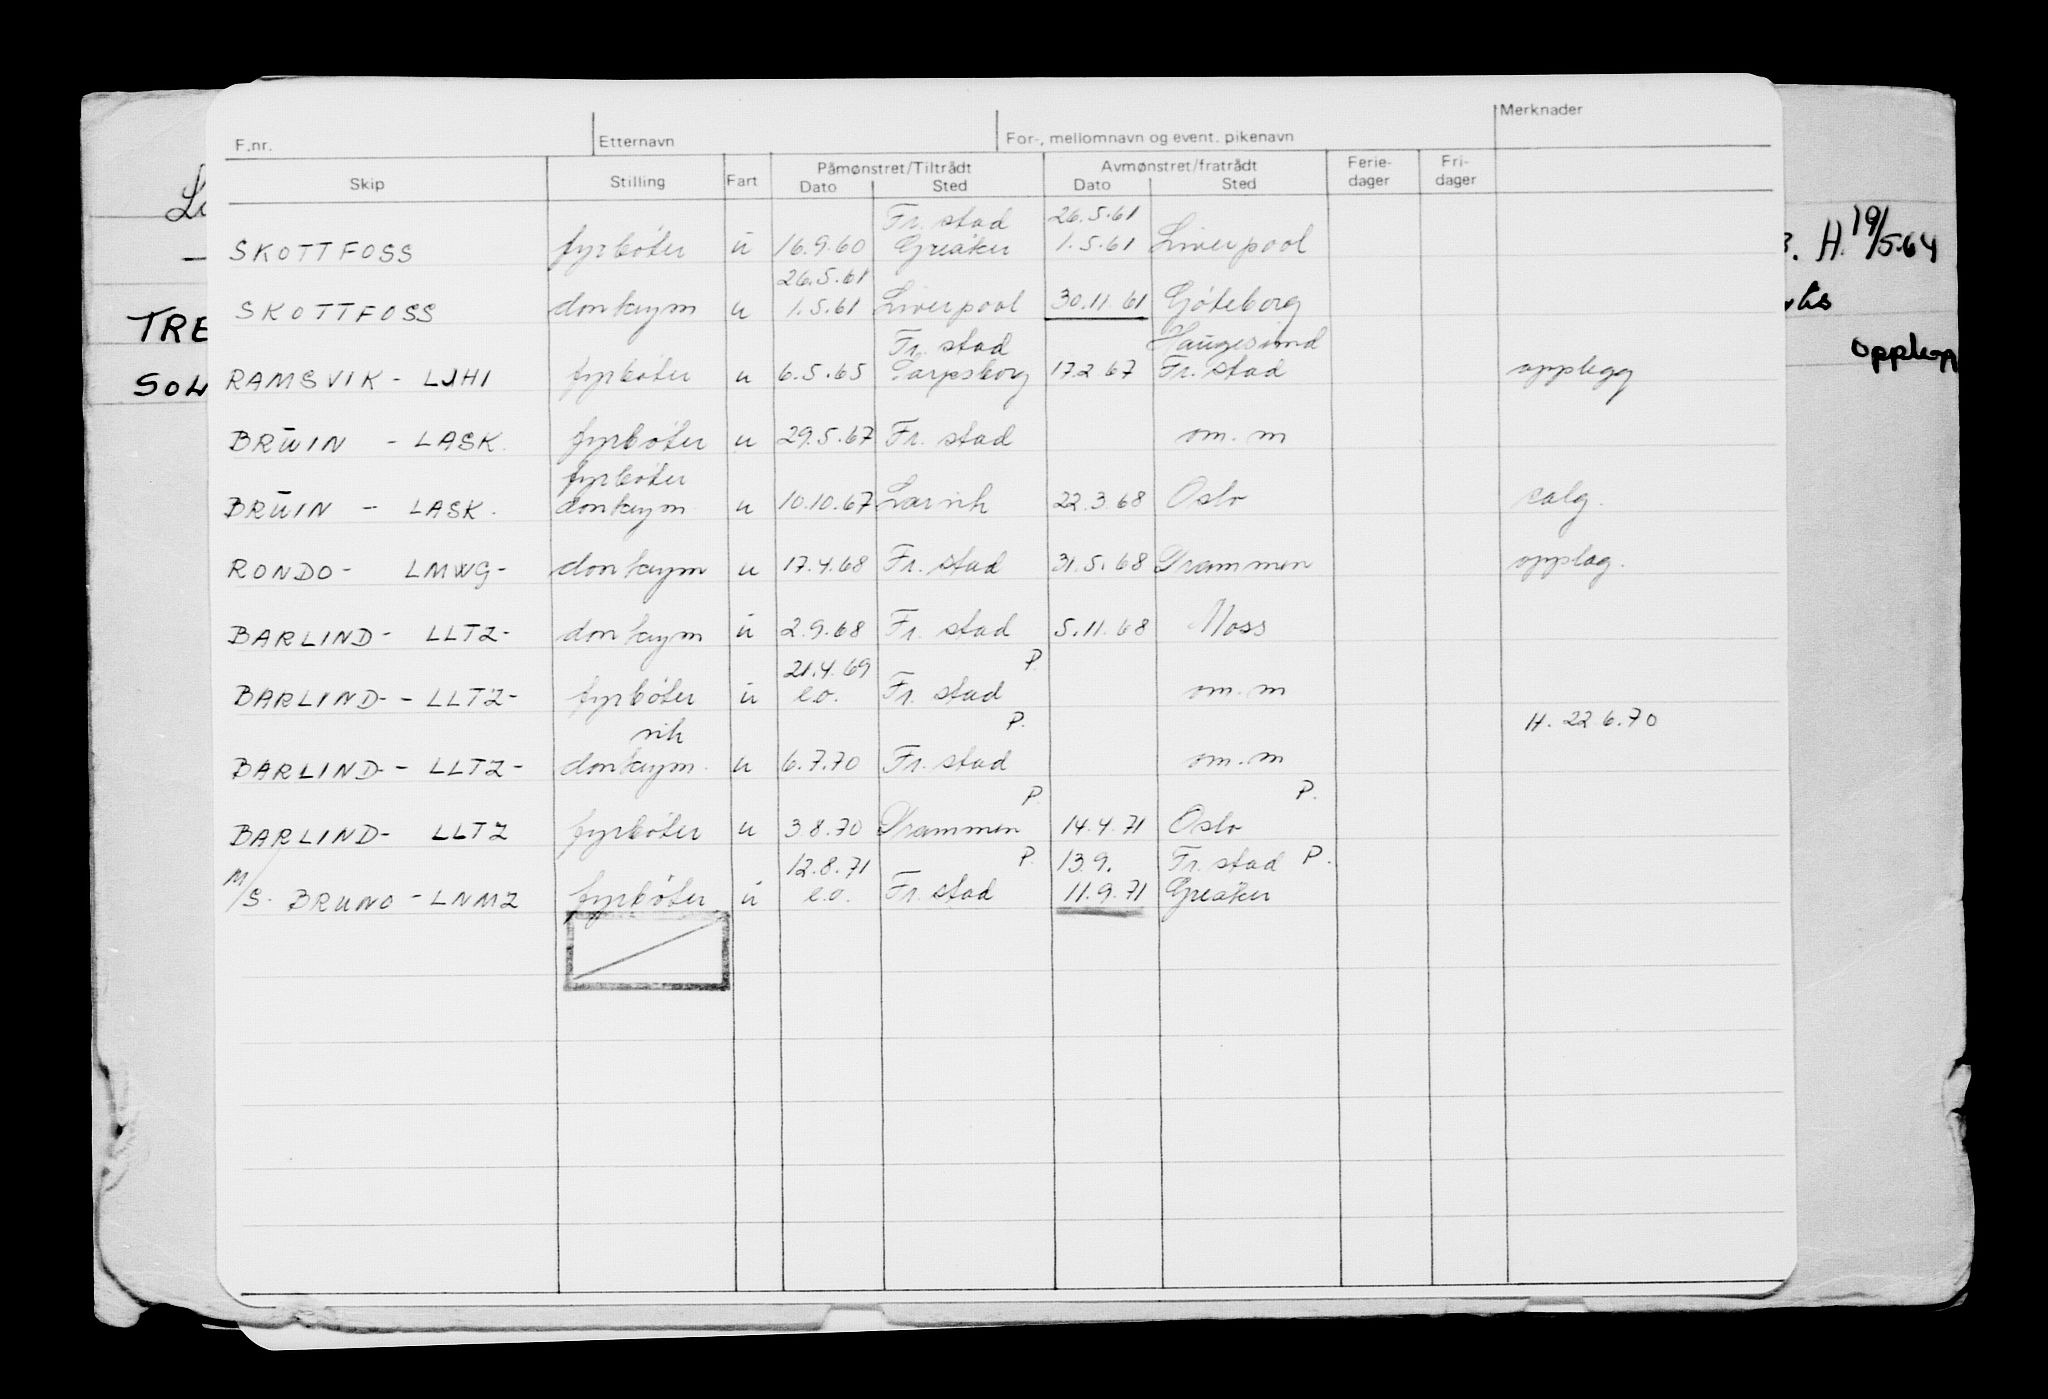 Merknader
F.nr. Etternavn For-, mellomnavn og event. pikenavn
Skip Stilling Fart Påmønstret/Tiltrådt Dato Sted Avmønstret/fratrådt Dato Sted Ferie-dager Fri-dager
Fr. stad 26.5.61
SKOTTFOSS fyrbøter u 16.9.60 Greåker 1.5.61 Liverpool
26.5.61
SKOTTFOSS donkeym u 1.5.61 Liverpool 30.11.61 Gøteborg
Fr. stad Haugesund
RAMSVIK - LJHI fyrbøter u 6.5.65 Sarpsborg 17.2.67 Fr. stad opplegg
BRUIN - LASK. fyrbøter u 29.5.67 Fr. stad om. m
fyrbøter
BRUIN - LASK. donkeym u 10.10.67 Larvik 22.3.68 Oslo salg.
RONDO - LMWG - donkeym u 17.4.68 Fr. stad 31.5.68 Drammen opplag.
BARLIND - LLTZ - donkeym u 2.9.68 Fr. stad 5.11.68 Moss
21.4.69 P.
BARLIND - - LLTZ - fyrbøter u e.o. Fr. stad om. m
vik P. H. 22.6.70
BARLIND - - LLTZ - donkeym. u 6.7.70 Fr. stad om. m
P. P.
BARLIND - LLTZ fyrbøter u 3.8.70 Drammen 14.4.71 Oslo
12.8.71 P. 13.9. Fr. stad P.
M/S. BRUNO - LNMZ fyrbøter u e.o. Fr. stad 11.9.71 Greåker
TRE
SOL
H. 19/5.64